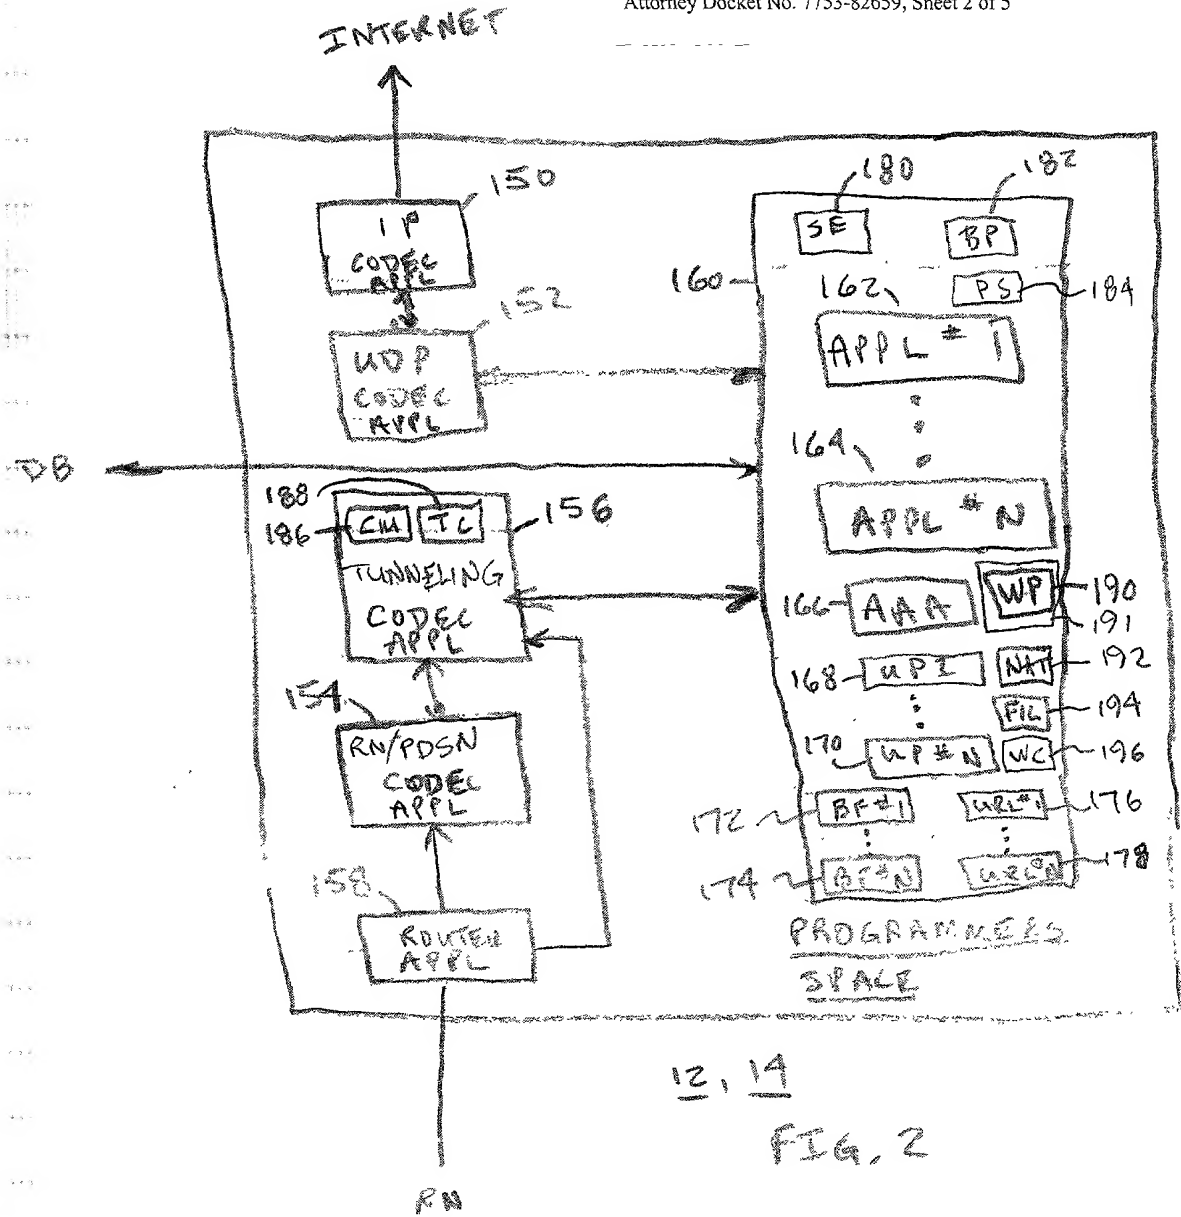 Attorney Docket No. 7753-82659, Sheet 2 of 5
INTERNET
150
IP
CODEC
APPL
152
UDP
CODEC
APPL
DB
188
186
CM
TC
156
TUNNELING
CODEC
APPL
154
RN/PDSN
CODEC
APPL
158
ROUTER
APPL
RN
160
180
SE
182
BP
PS
184
162
APPL #1
164
APPL #N
166
AAA
WP
190
191
168
UPI
NAT
192
FIL
194
170
UP#N
WC
196
172
BF#1
URL#1
176
174
BF#N
URL#N
178
PROGRAMMERS
SPACE
12, 14
FIG. 2